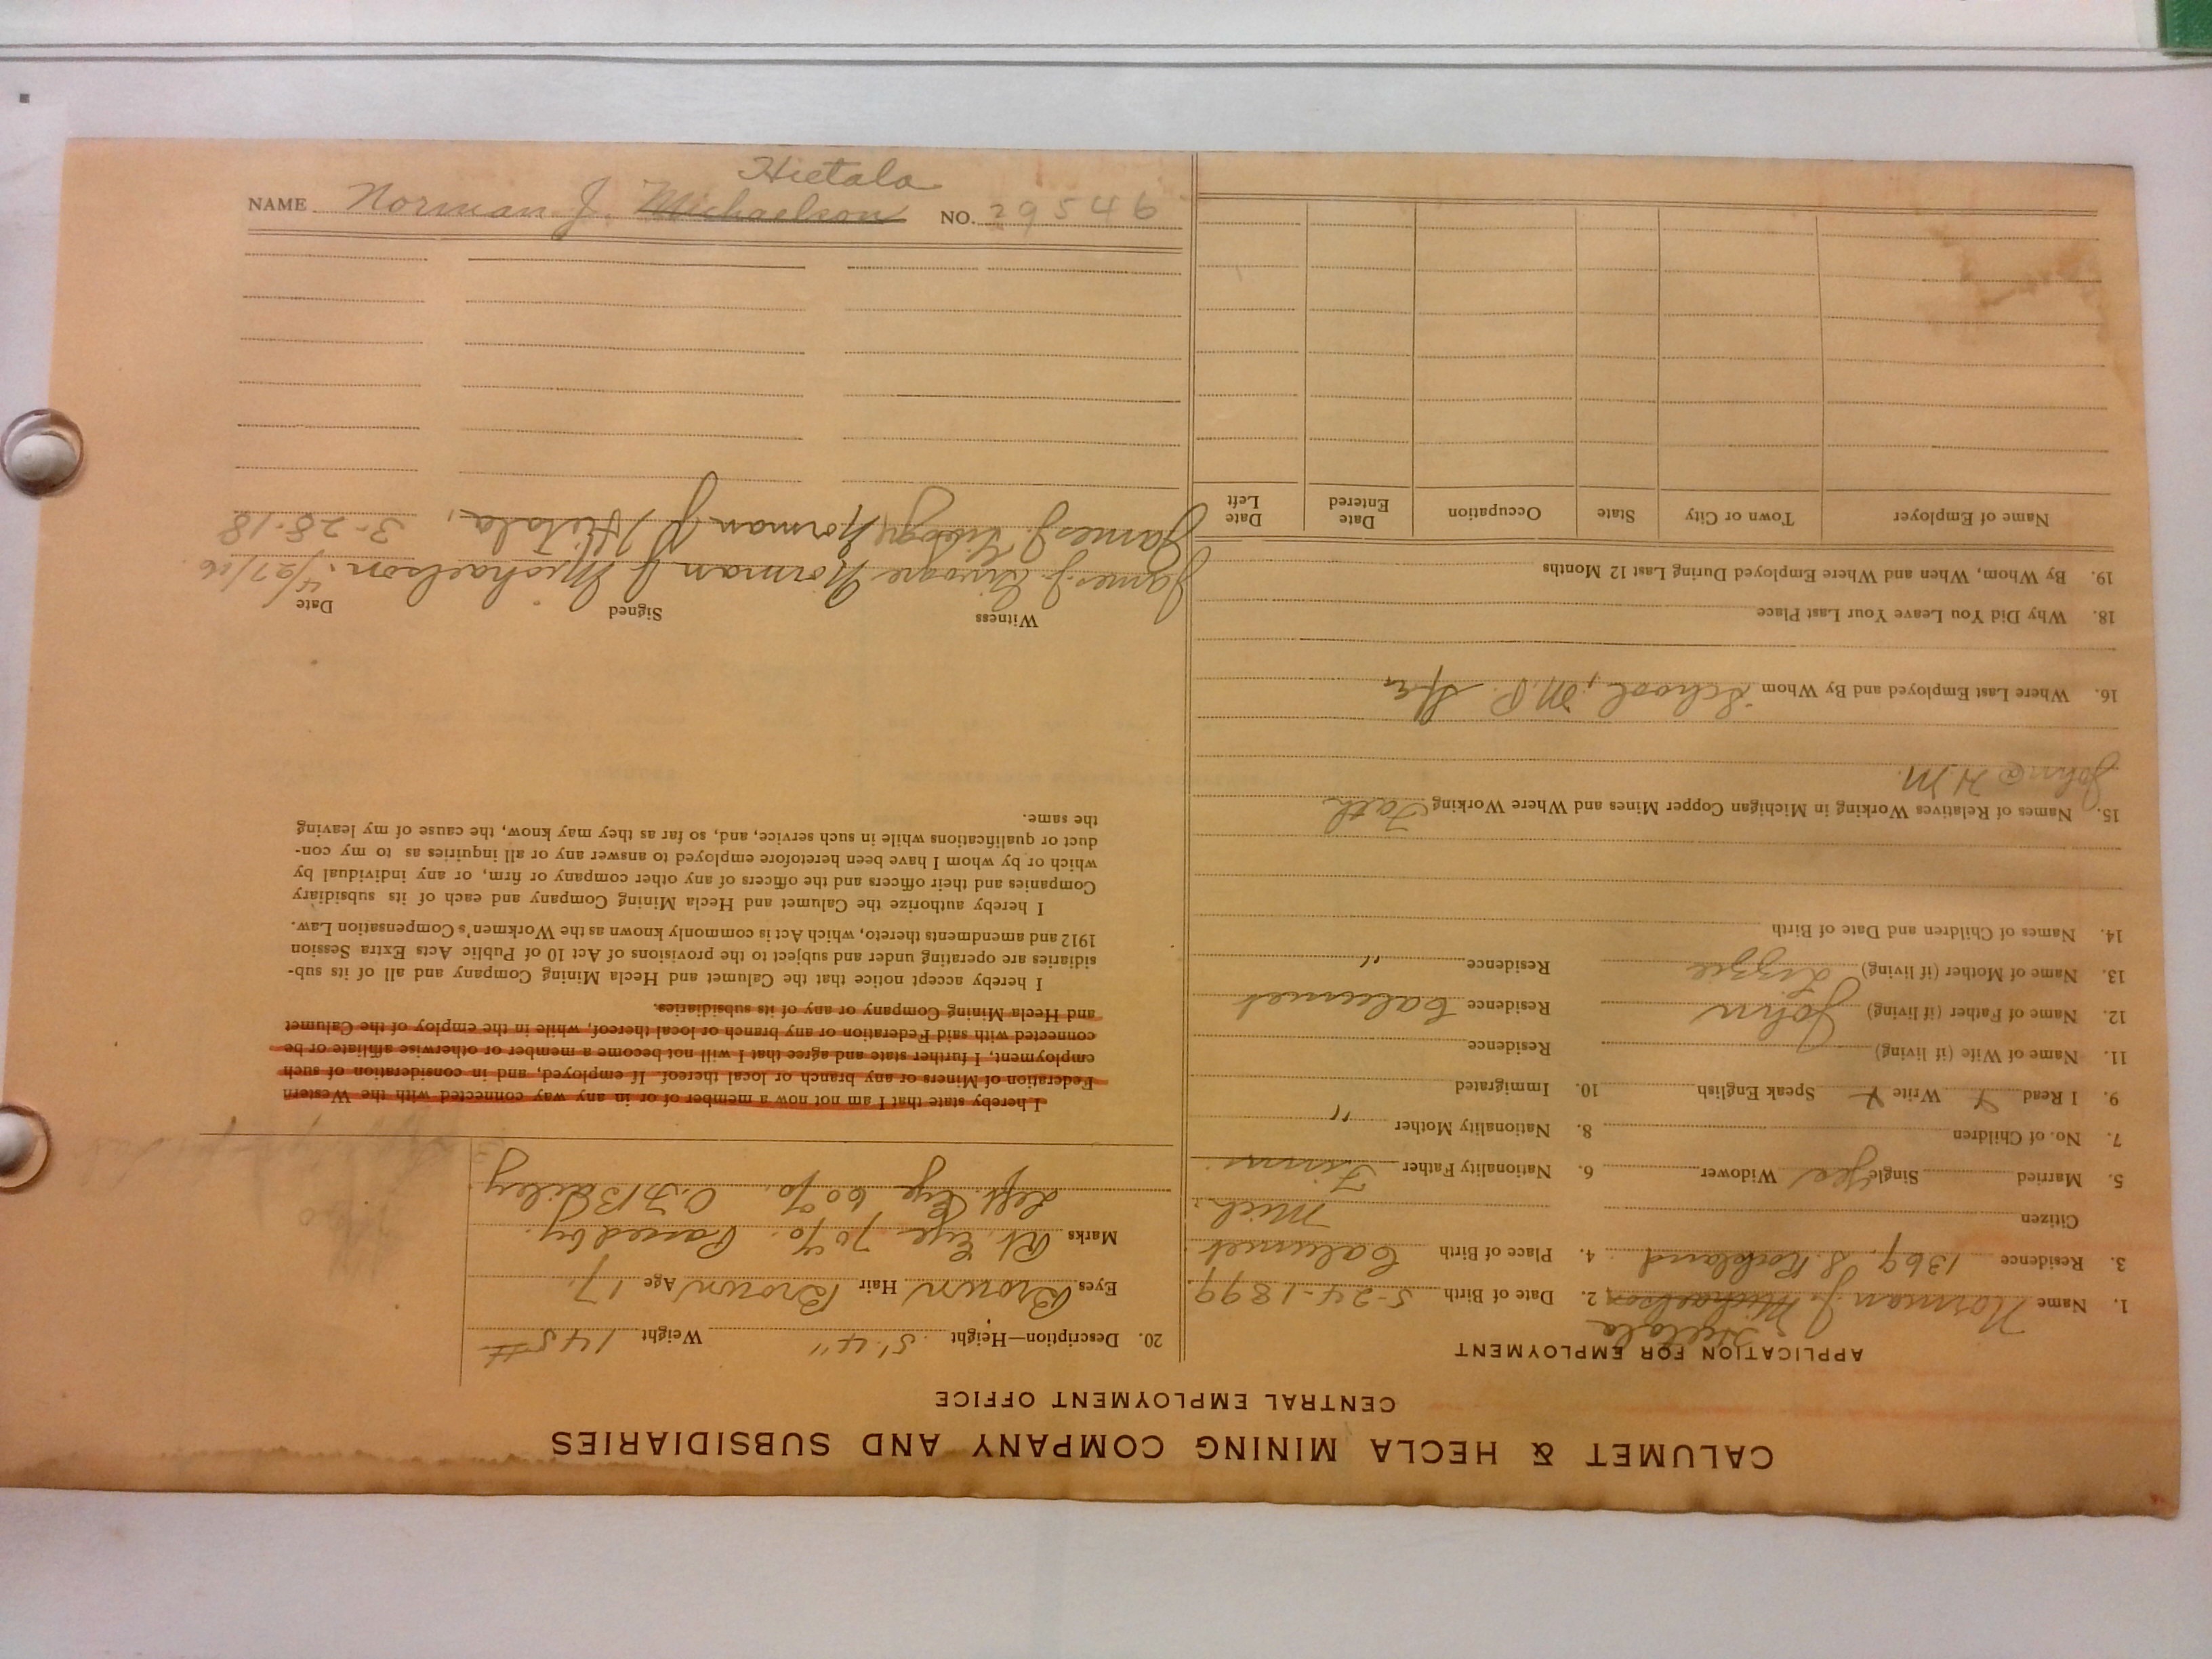 CALUMET & HECLA MINING COMPANY AND SUBSIDIARIES
CENTRAL EMPLOYMENT OFFICE
APPLICATION FOR EMPLOYMENT
Hietala
1. Name Norman J. Michaelson 2. Date of Birth 5-24-1899
3. Residence 1369 S. Rockland 4. Place of Birth Calumet
Citizen Mich.
5. Married Single yes Widower 6. Nationality Father Finn
7. No. of Children 8. Nationality Mother "
9. I Read Y Write Y Speak English 10. Immigrated
11. Name of Wife (if living) Residence
12. Name of Father (if living) John Residence Calumet
13. Name of Mother (if living) Lizzie Residence "
14. Names of Children and Date of Birth
15. Names of Relatives Working in Michigan Copper Mines and Where Working Fath
John @ H.M.
16. Where Last Employed and By Whom School, M.P.
18. Why Did You Leave Your Last Place
19. By Whom, When and Where Employed During Last 12 Months
Name of Employer Town or City State Occupation Date Entered Date Left
20. Description—Height 5'.4" Weight 145#
Eyes Brown Hair Brown Age 17.
Marks Rt. Eye 70%. Passed by.
Left Eye 60%. O.F. Bailey
I hereby state that I am not now a member of or in any way connected with the Western
Federation of Miners or any branch or local thereof. If employed, and in consideration of such
employment, I further state and agree that I will not become a member or otherwise affiliate or be
connected with said Federation or any branch or local thereof, while in the employ of the Calumet
and Hecla Mining Company or any of its subsidiaries.
I hereby accept notice that the Calumet and Hecla Mining Company and all of its sub-
sidiaries are operating under and subject to the provisions of Act 10 of Public Acts Extra Session
1912 and amendments thereto, which Act is commonly known as the Workmen's Compensation Law.
I hereby authorize the Calumet and Hecla Mining Company and each of its subsidiary
Companies and their officers and the officers of any other company or firm, or any individual by
which or by whom I have been heretofore employed to answer any or all inquiries as to my con-
duct or qualifications while in such service, and, so far as they may know, the cause of my leaving
the same.
Witness Signed Date
James J. Norman J Michaelson. 4/27/16
James J. Norman J Hietala, 3-28-18
Hietala
NAME Norman J. Michaelson NO. 29546